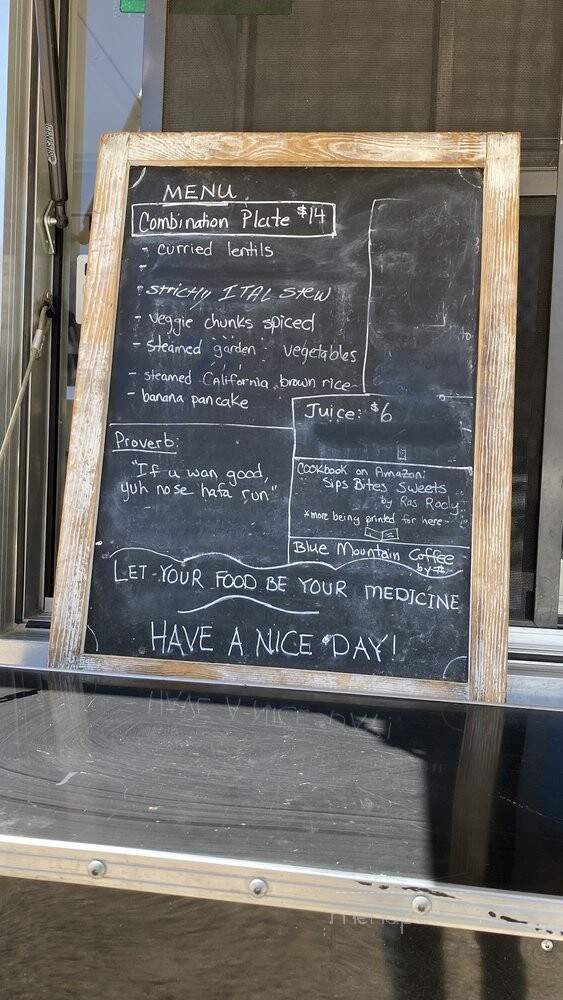 MENU
Combination Plate $14
- curried lentils
-
- strictly ITAL stew
- veggie chunks spiced
- steamed garden vegetables
- steamed California brown rice
- banana pancake
Juice: $6
Proverb:
"If u wan good,
yuh nose hafa run"
Cookbook on Amazon:
Sips Bites Sweets
by Ras Rody
*more being printed for here
Blue Mountain Coffee
by #
LET YOUR FOOD BE YOUR MEDICINE
HAVE A NICE DAY!